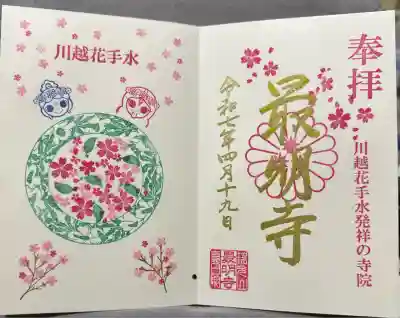 川越花手水
奉拝
川越花手水発祥の寺院
最明寺
令和七年四月十九日